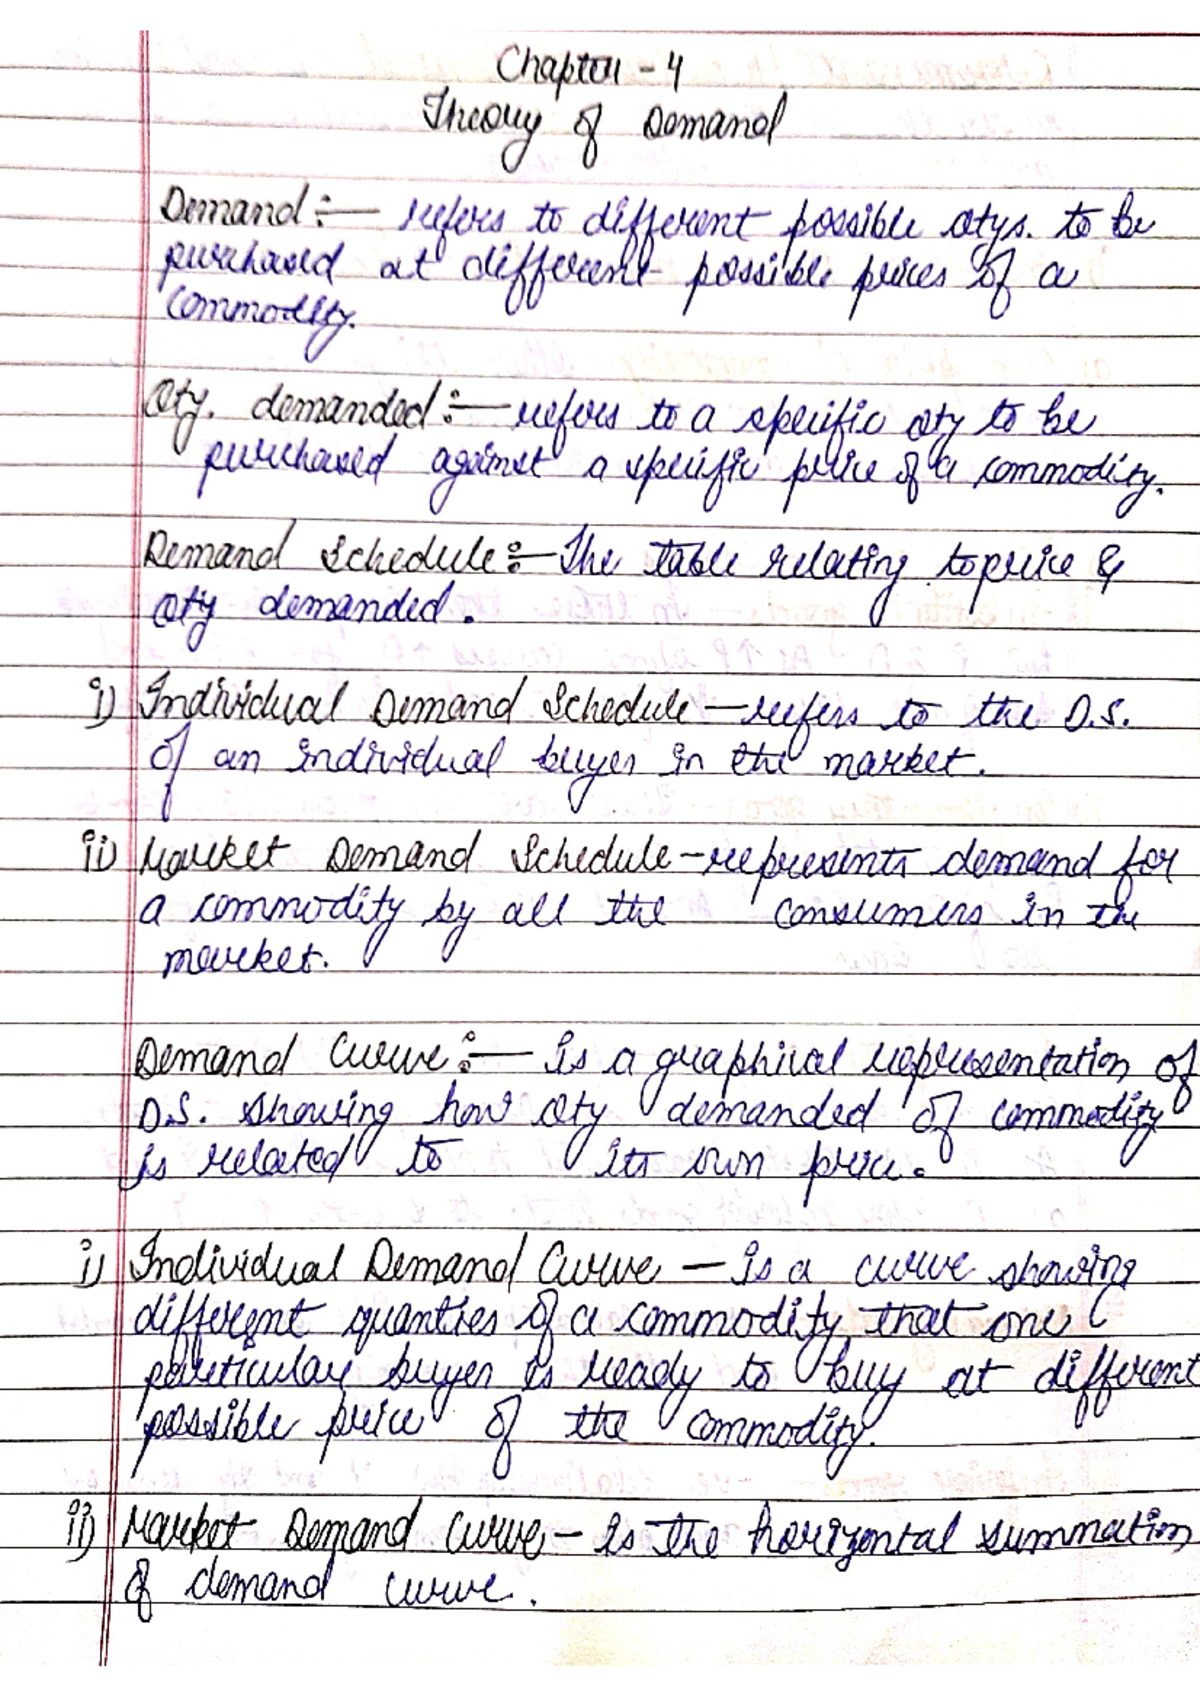 Chapter - 4
Theory of Demand
Demand :— refers to different possible qtys. to be
purchased at different possible prices of a
commodity.
Qty. demanded :— refers to a specific qty to be
purchased against a specific price of a commodity.
Demand Schedule :— The table relating to price &
qty demanded.
i) Individual Demand Schedule — refers to the D.S.
of an individual buyer in the market.
ii) Market Demand Schedule - represents demand for
a commodity by all the consumers in the
market.
Demand Curve :— is a graphical representation of
D.S. showing how qty demanded of commodity
is related to its own price.
i) Individual Demand Curve — is a curve showing
different quanties of a commodity that one
particular buyer is ready to buy at different
possible price of the commodity.
ii) Market Demand Curve - is the horizontal summation
of demand curve.